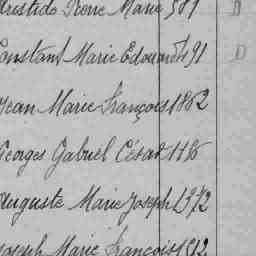 Aristide Pierre Marie 581 D
Constant Marie Edouard 191 D
Jean Marie François 1862
Georges Gabriel César 1196
Auguste Marie Joseph 1972
Joseph Marie François 1912